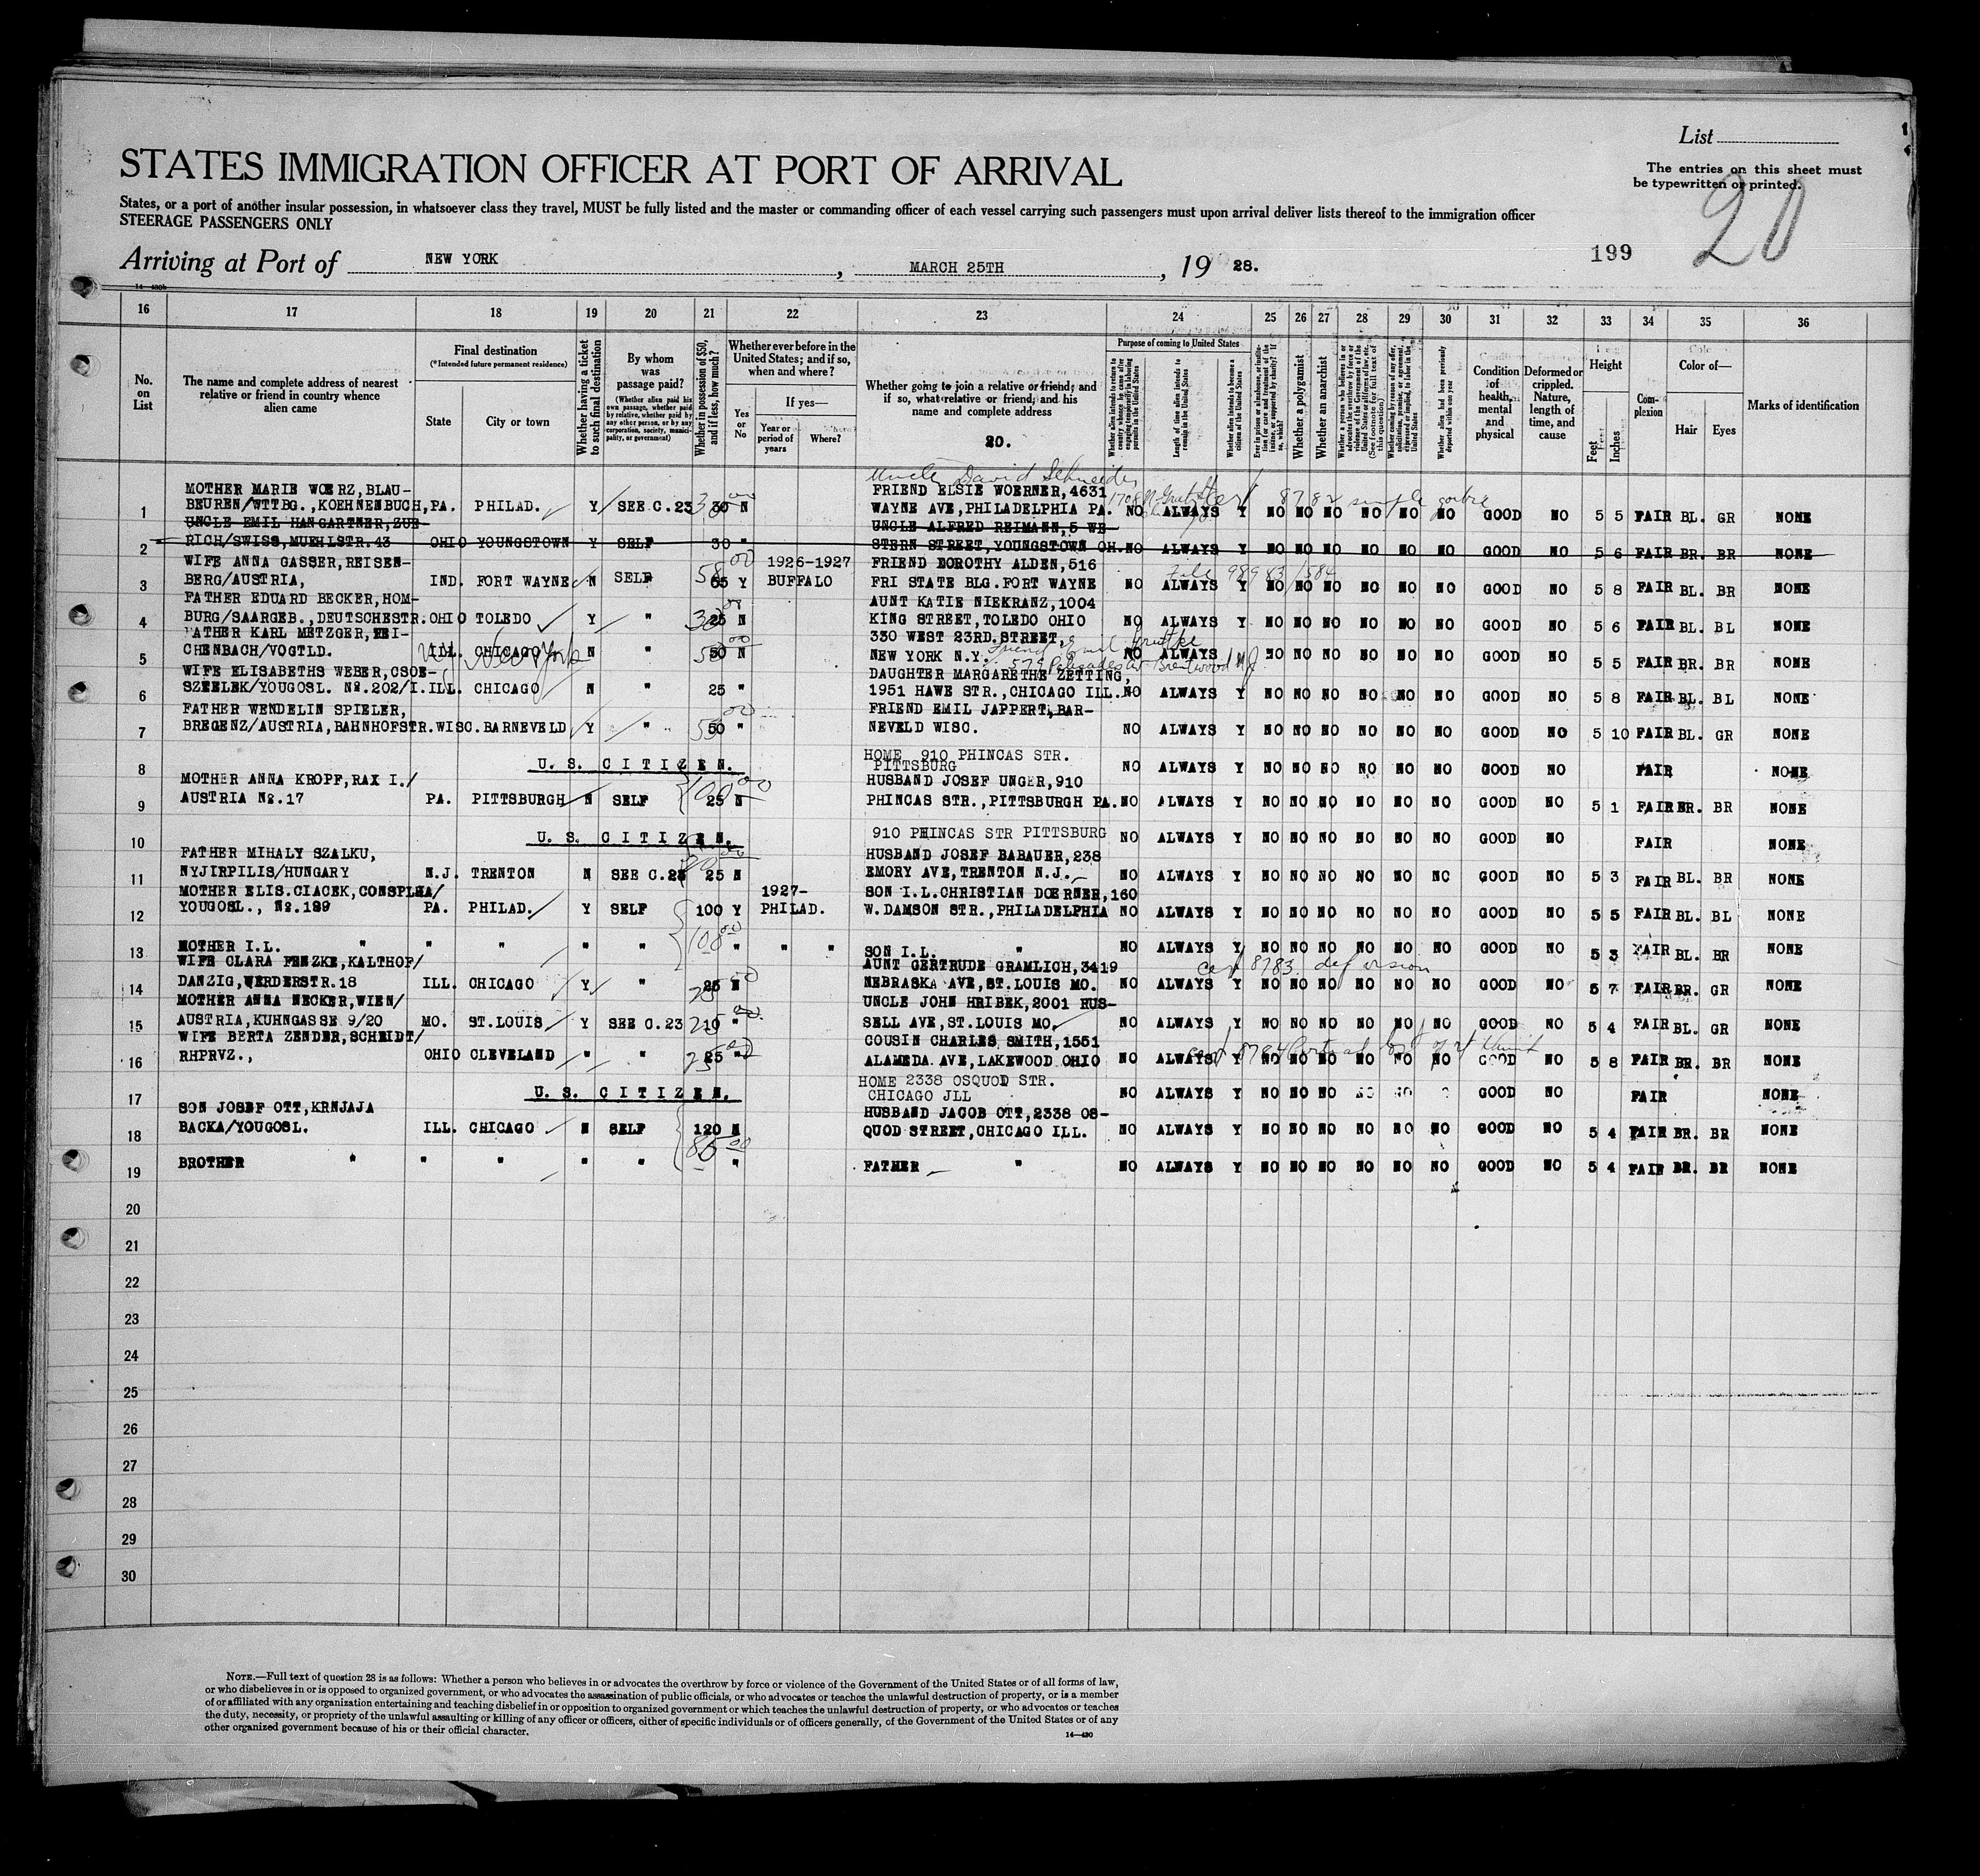 List
The entries on this sheet must
be typewritten or printed.
STATES IMMIGRATION OFFICER AT PORT OF ARRIVAL
States, or a port of another insular possession, in whatsoever class they travel, MUST be fully listed and the master or commanding officer of each vessel carrying such passengers must upon arrival deliver lists thereof to the immigration officer
STEERAGE PASSENGERS ONLY
20
199
Arriving at Port of NEW YORK , MARCH 25TH , 19 28.
16 17 18 19 20 21 22 23 24 25 26 27 28 29 30 31 32 33 34 35 36
No. on List
The name and complete address of nearest relative or friend in country whence alien came
Final destination
(*Intended future permanent residence)
State
City or town
Whether having a ticket to such final destination
By whom was passage paid?
(Whether alien paid his own passage, whether paid by relative, whether paid by any other person, or by any corporation, society, municipality, or government)
Whether in possession of $50, and if less, how much?
Whether ever before in the United States; and if so, when and where?
Yes or No
If yes—
Year or period of years
Where?
Whether going to join a relative or friend; and if so, what relative or friend, and his name and complete address
20.
Purpose of coming to United States
Whether alien intends to return to country whence he came after engaging temporarily in laboring pursuits in the United States
Length of time alien intends to remain in the United States
Whether alien intends to become a citizen of the United States
Ever in prison or almshouse, or institution for care and treatment of the insane, or supported by charity? If so, which?
Whether a polygamist
Whether an anarchist
Whether a person who believes in or advocates the overthrow by force or violence of the Government of the United States or all forms of law, etc. (See footnote for full text of this question)
Whether coming by reason of any offer, solicitation, promise, or agreement, expressed or implied, to labor in the United States
Whether alien had been previously deported within one year
Condition of health, mental and physical
Deformed or crippled. Nature, length of time, and cause
Height
Feet
Inches
Complexion
Color of—
Hair
Eyes
Marks of identification
Uncle David Schneider
MOTHER MARIE WOERZ,BLAU- FRIEND ELSIE WOERNER,4631
1 BEUREN/WTTBG.,KOEHNENBUCH, PA. PHILAD. Y SEE C.23 30 N WAYNE AVE,PHILADELPHIA PA. NO ALWAYS Y NO NO NO NO NO NO GOOD NO 5 5 FAIR BL. GR NONE
UNCLE EMIL HANGARTNER,ZUE- UNCLE ALFRED REIMANN,5 WE-
2 RICH/SWISS,MUEHLSTR.43 OHIO YOUNGSTOWN Y SELF 30 " STERN STREET,YOUNGSTOWN OH. NO ALWAYS Y NO NO NO NO NO NO GOOD NO 5 6 FAIR BR. BR NONE
WIFE ANNA GASSER,REISEN- 1926-1927 FRIEND DOROTHY ALDEN,516
3 BERG/AUSTRIA, IND. FORT WAYNE N SELF 65 Y BUFFALO FRI STATE BLG.FORT WAYNE NO ALWAYS Y NO NO NO NO NO NO GOOD NO 5 8 FAIR BL. BR NONE
FATHER EDUARD BECKER,HOM- AUNT KATIE NIEKRANZ,1004
4 BURG/SAARGEB.,DEUTSCHESTR. OHIO TOLEDO Y " 25 N KING STREET,TOLEDO OHIO NO ALWAYS Y NO NO NO NO NO NO GOOD NO 5 6 FAIR BL. BL NONE
FATHER KARL METZGER,WEI- 330 WEST 23RD.STREET,
5 CHENBACH/VOGTLD. ILL. CHICAGO New York N 50 N NEW YORK N.Y. NO ALWAYS Y NO NO NO NO NO NO GOOD NO 5 5 FAIR BR. BR NONE
WIFE ELISABETHS WEBER,CSOE- DAUGHTER MARGARETHE ZETTING,
6 SZEELEK/YOUGOSL. No.202/I. ILL. CHICAGO N " 25 " 1951 HAWE STR.,CHICAGO ILL. NO ALWAYS Y NO NO NO NO NO NO GOOD NO 5 8 FAIR BL. BL NONE
FATHER WENDELIN SPIELER, FRIEND EMIL JAPPERT,BAR-
7 BREGENZ/AUSTRIA,BAHNHOFSTR. WISC. BARNEVELD Y " 50 " NEVELD WISC. NO ALWAYS Y NO NO NO NO NO NO GOOD NO 5 10 FAIR BL. GR NONE
HOME 910 PHINCAS STR.
8 U. S. CITIZEN. PITTSBURG NO ALWAYS Y NO NO NO NO NO NO GOOD NO FAIR NONE
MOTHER ANNA KROPF,RAX I./ HUSBAND JOSEF UNGER,910
9 AUSTRIA No.17 PA. PITTSBURGH N SELF 25 N PHINCAS STR.,PITTSBURGH PA. NO ALWAYS Y NO NO NO NO NO NO GOOD NO 5 1 FAIR BR. BR NONE
10 U. S. CITIZEN. 910 PHINCAS STR PITTSBURG NO ALWAYS Y NO NO NO NO NO NO GOOD NO FAIR NONE
FATHER MIHALY SZALKU, HUSBAND JOSEF BABAUER,238
11 NYJIRPILIS/HUNGARY N.J. TRENTON N SEE C.23 25 N EMORY AVE,TRENTON N.J. NO ALWAYS Y NO NO NO NO NO NO GOOD NO 5 3 FAIR BL. BR NONE
MOTHER ELIS.CIACEK,CONSPLHA/ 1927- SON I.L.CHRISTIAN DOERNER,160
12 YOUGOSL., No.189 PA. PHILAD. Y SELF 100 Y PHILAD. W.DAMSON STR.,PHILADELPHIA NO ALWAYS Y NO NO NO NO NO NO GOOD NO 5 5 FAIR BL. BL NONE
13 MOTHER I.L. " " " " " " " " SON I.L. " NO ALWAYS Y NO NO NO NO NO NO GOOD NO 5 3 FAIR BL. BR NONE
WIFE CLARA FENZKE,KALTHOF/ AUNT GERTRUDE GRAMLICH,3419
14 DANZIG,WERDERSTR.18 ILL. CHICAGO Y " 25 N NEBRASKA AVE,ST.LOUIS MO. NO ALWAYS Y NO NO NO NO NO NO GOOD NO 5 7 FAIR BR. GR NONE
MOTHER ANNA NECKER,WIEN/ UNCLE JOHN HRIBEK,2001 RUS-
15 AUSTRIA,KUHNGASSE 9/20 MO. ST.LOUIS Y SEE C.23 10 " SELL AVE,ST.LOUIS MO. NO ALWAYS Y NO NO NO NO NO NO GOOD NO 5 4 FAIR BL. GR NONE
WIFE BERTA ZENDER,SCHEIDT/ COUSIN CHARLES SMITH,1551
16 RHPRVZ., OHIO CLEVELAND " " 25 " ALAMEDA AVE,LAKEWOOD OHIO NO ALWAYS Y NO NO NO NO NO NO GOOD NO 5 8 FAIR BR. BR NONE
HOME 2338 OSQUOD STR.
17 U. S. CITIZEN. CHICAGO JLL NO ALWAYS Y NO NO NO NO NO GOOD NO FAIR NONE
SON JOSEF OTT,KRNJAJA HUSBAND JACOB OTT,2338 OS-
18 BACKA/YOUGOSL. ILL. CHICAGO N SELF 120 N QUOD STREET,CHICAGO ILL. NO ALWAYS Y NO NO NO NO NO NO GOOD NO 5 4 FAIR BR. BR NONE
19 BROTHER " " " " " " FATHER " NO ALWAYS Y NO NO NO NO NO NO GOOD NO 5 4 FAIR BR. BR NONE
20
21
22
23
24
25
26
27
28
29
30
NOTE.—Full text of question 28 is as follows: Whether a person who believes in or advocates the overthrow by force or violence of the Government of the United States or of all forms of law,
or who disbelieves in or is opposed to organized government, or who advocates the assassination of public officials, or who advocates or teaches the unlawful destruction of property, or is a member
of or affiliated with any organization entertaining and teaching disbelief in or opposition to organized government or which teaches the unlawful destruction of property, or who advocates or teaches
the duty, necessity, or propriety of the unlawful assaulting or killing of any officer or officers, either of specific individuals or of officers generally, of the Government of the United States or of any
other organized government because of his or their official character.
14—430